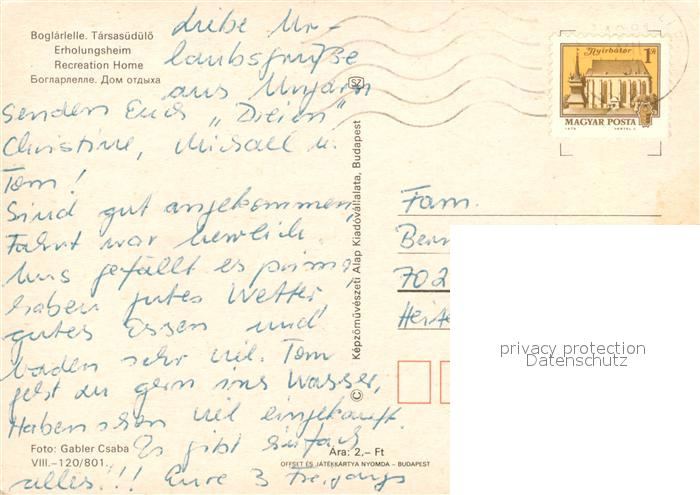 Boglárlelle. Társasüdülő
Erholungsheim
Recreation Home
Богларлелле. Дом отдыха
Liebe Ur-
laubsgrüße
aus Ungarn
Senden Euch „Dreien"
Christine, Michael u.
Tom!
Sind gut angekommen,
Fahrt war herrlich
Uns gefällt es prima,
haben gutes Wetter,
gutes Essen und
baden sehr viel. Tom
geht du gern ins Wasser,
Haben schon viel eingekauft.
Es gibt einfach
alles!!! Eure 3 Freigangs
Foto: Gabler Csaba
VIII.–120/801
Ára: 2,– Ft
OFFSET ÉS JÁTÉKKÁRTYA NYOMDA – BUDAPEST
© Képzőművészeti Alap Kiadóvállalata, Budapest
SZ
Nyírbátor
1 Ft
MAGYAR POSTA
Fam.
702
privacy protection
Datenschutz